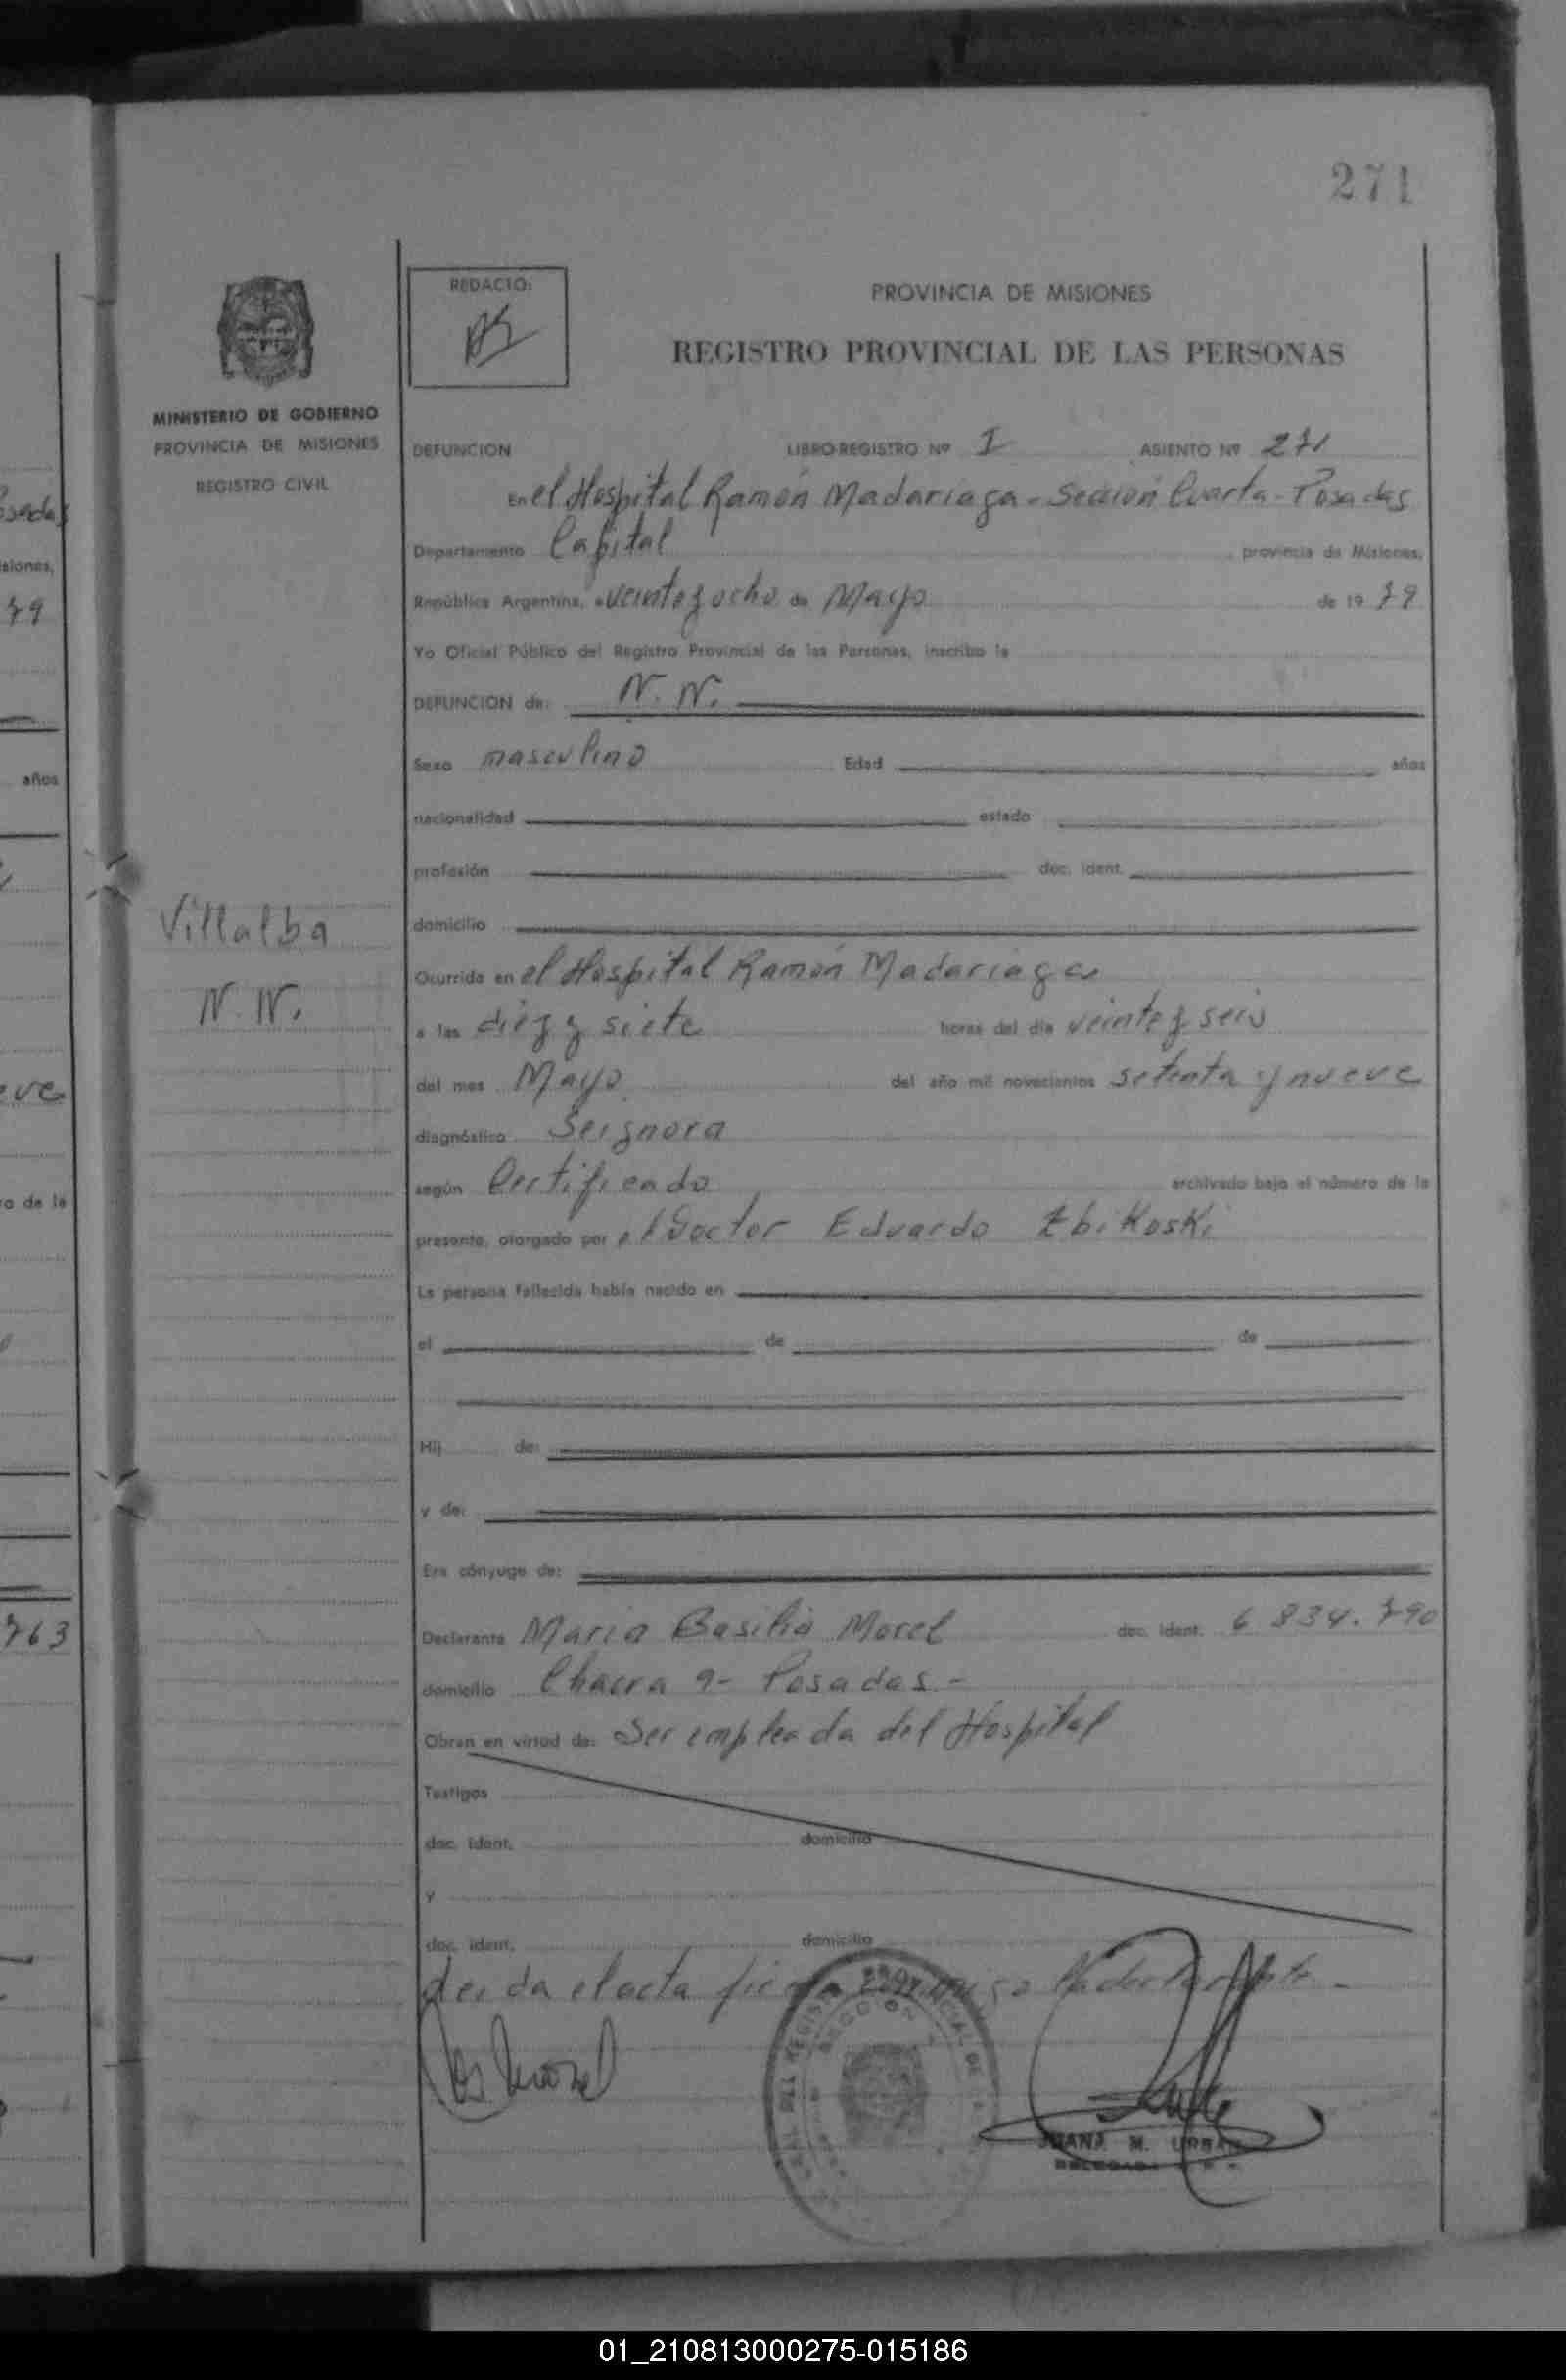 271
REDACTO:
PROVINCIA DE MISIONES
REGISTRO PROVINCIAL DE LAS PERSONAS
MINISTERIO DE GOBIERNO
PROVINCIA DE MISIONES
REGISTRO CIVIL
DEFUNCION LIBRO-REGISTRO Nº I ASIENTO Nº 271
En el Hospital Ramón Madariaga - Sección Cuarta - Posadas
Departamento Capital provincia de Misiones,
República Argentina, a veinte y ocho de Mayo de 19 79
Yo Oficial Público del Registro Provincial de las Personas, inscribo la
DEFUNCION de: N. N.
Sexo masculino Edad años
nacionalidad estado
profesión doc. ident.
domicilio
Villalba
N. N.
Ocurrida en el Hospital Ramón Madariaga
a las diez y siete horas del día veinte y seis
del mes Mayo del año mil novecientos setenta y nueve
diagnóstico Se ignora
según Certificado archivado bajo el número de la
presente, otorgado por el Doctor Eduardo Zbikoski
La persona fallecida había nacido en
el de de
Hij de:
y de:
Era cónyuge de:
Declarante Maria Basilia Morel doc. ident. 6 834.790
domicilio Chacra 9- Posadas.-
Obran en virtud de: Ser empleada del Hospital
Testigos
doc. ident. domicilio
y
doc. ident. domicilio
Leida el acta firma conmigo la declarante -
JUANA M. URBAN
01_210813000275-015186